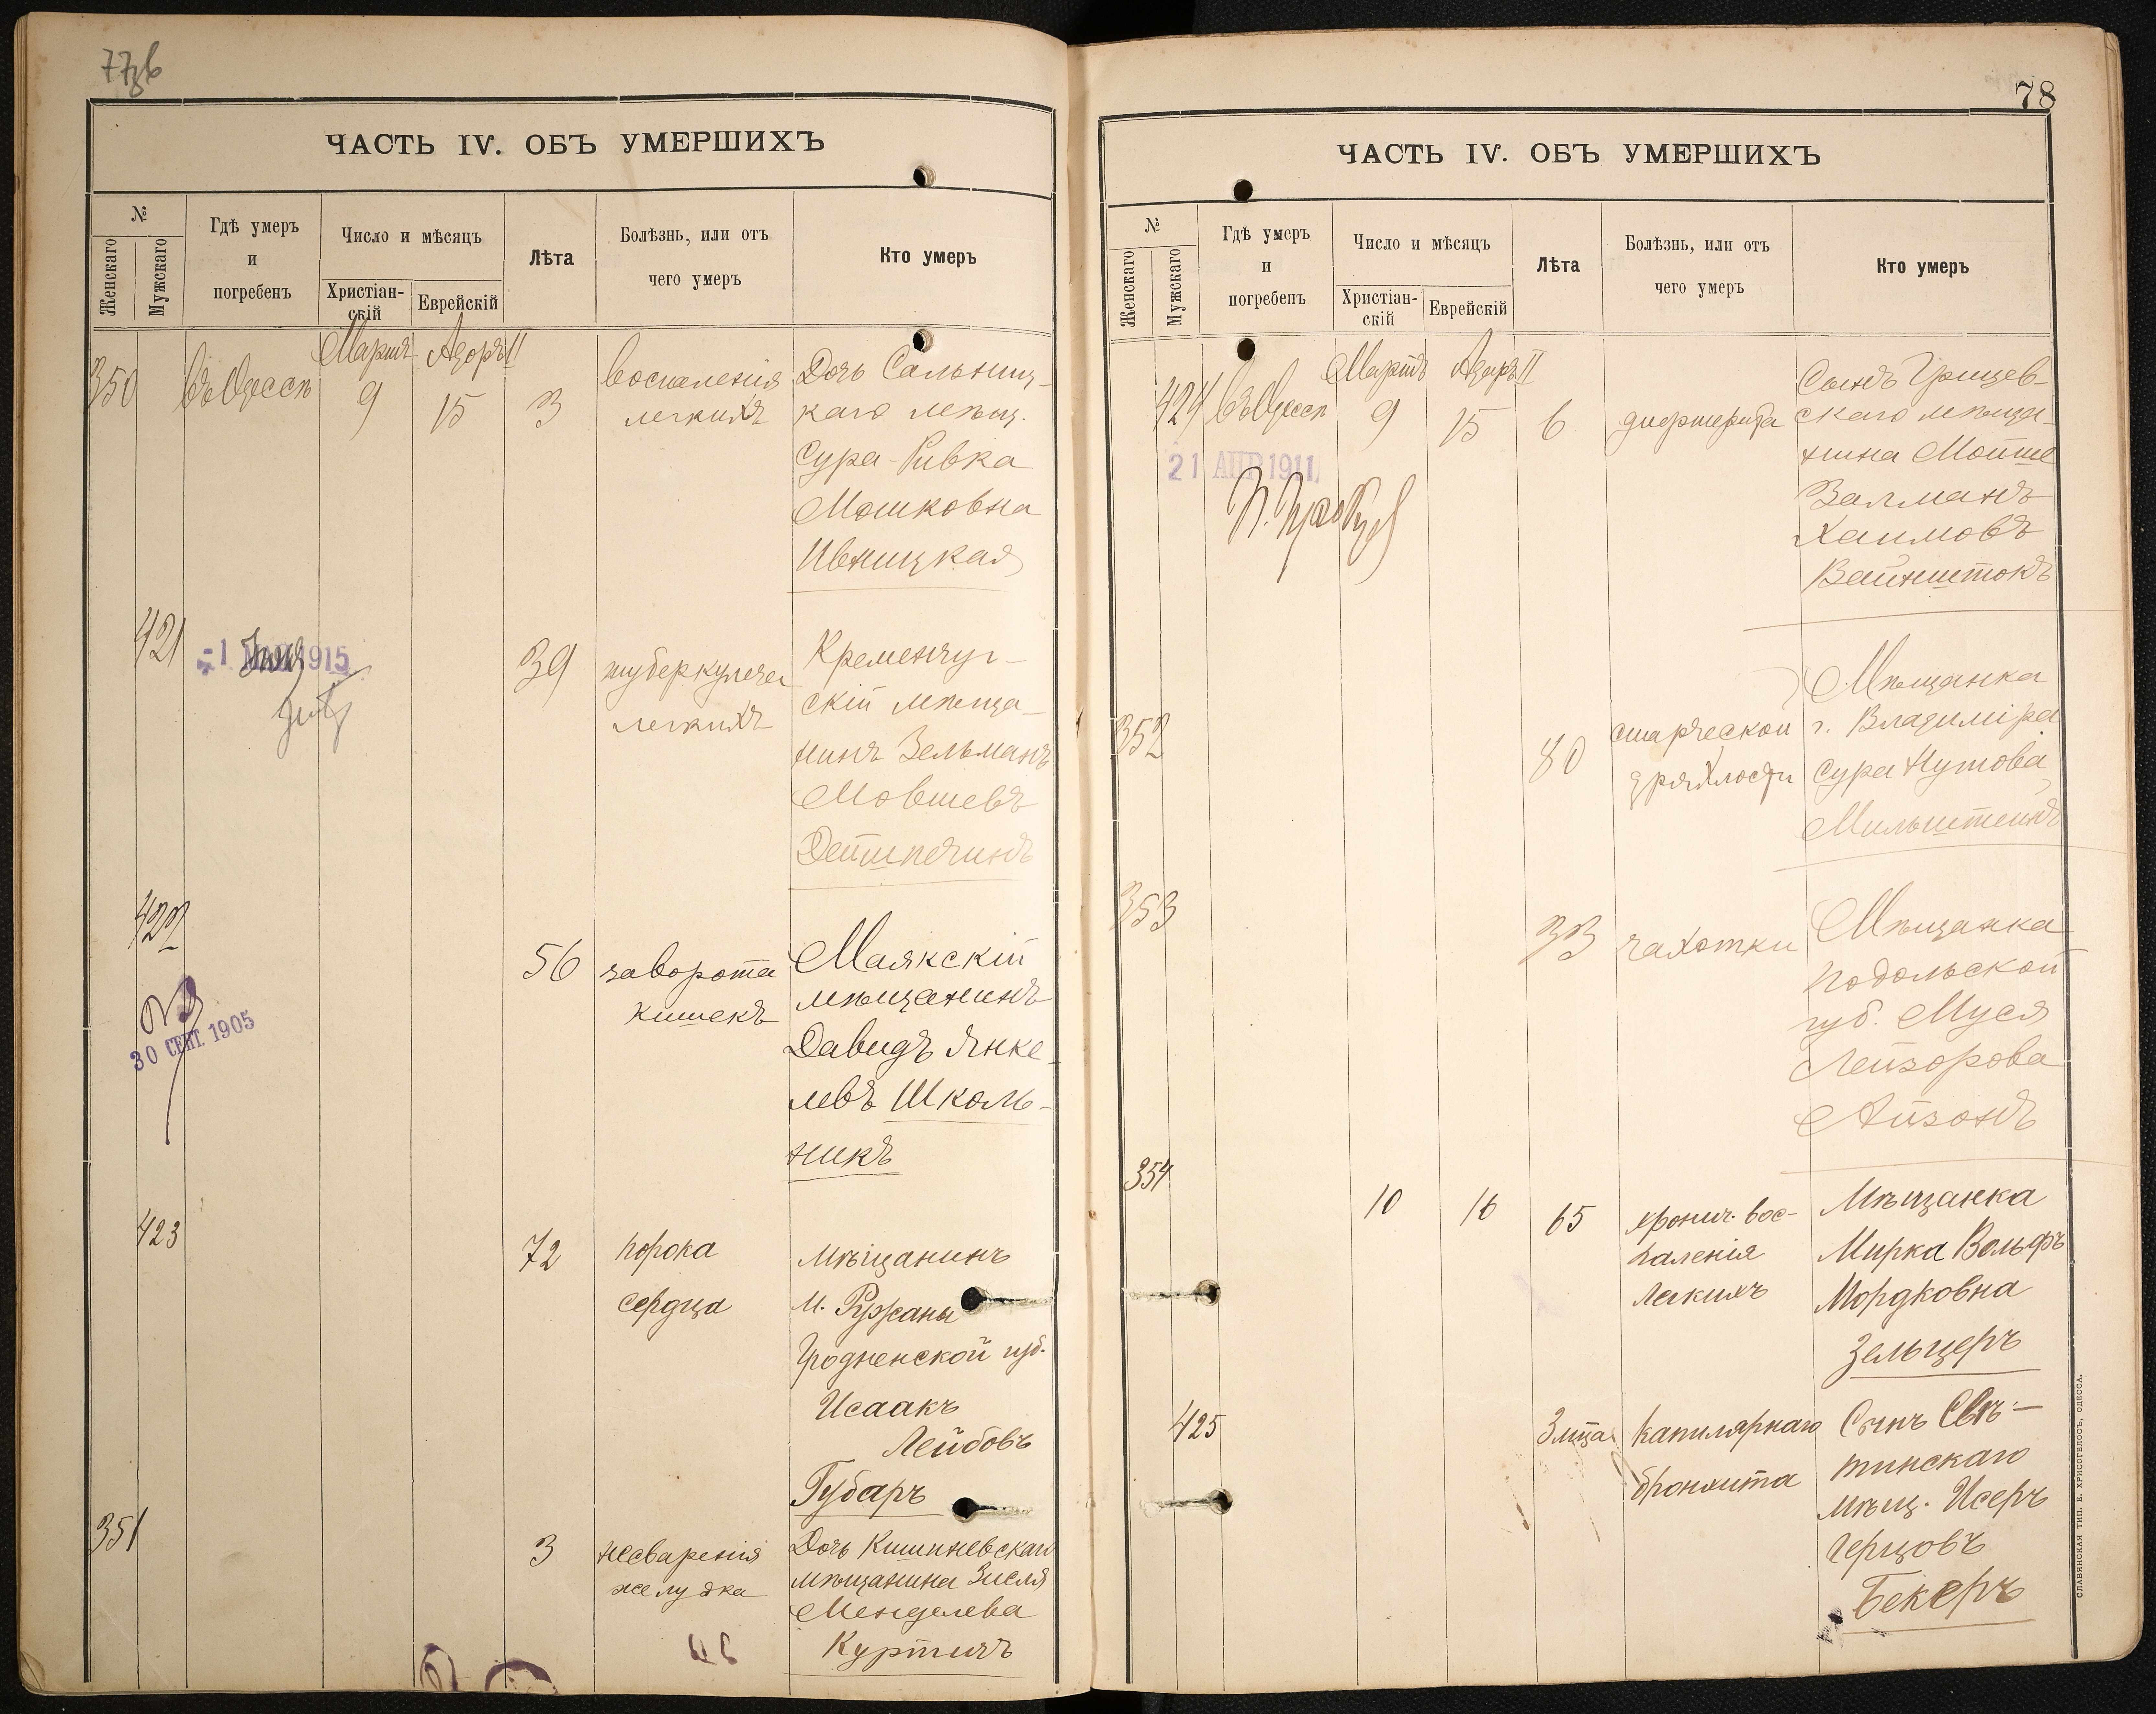 77об
ЧАСТЬ IV. ОБЪ УМЕРШИХЪ
№
Женскаго
Мужскаго
Гдѣ умеръ
и
погребенъ
Число и мѣсяцъ
Христіан-
скій
Еврейскій
Лѣта
Болѣзнь, или отъ
чего умеръ
Кто умеръ
Мартъ Адоръ II
350
въ Одессѣ
9
15
3
воспаленія
легкихъ
Дочь Сальниц-
каго мѣщ.
Сура-Ривка
Мошковна
Ивницкая
421
1 1915
39
туберкулеза
легкихъ
Кременчуг-
скій мѣща-
нинъ Зельманъ
Мовшевъ
422
30 СЕНТ. 1905
56
заворота
кишекъ
Маякскій
мѣщанинъ
Давидъ Янке-
левъ Школь-
никъ
423
72
порока
сердца
Мѣщанинъ
м. Ружаны
Гродненской губ.
Исаакъ
Лейбовъ
Губаръ
351
3
несваренія
желудка
Дочь Кишиневскаго
мѣщанина Зисля
Менделева
78
ЧАСТЬ IV. ОБЪ УМЕРШИХЪ
№
Женскаго
Мужскаго
Гдѣ умеръ
и
погребенъ
Число и мѣсяцъ
Христіан-
скій
Еврейскій
Лѣта
Болѣзнь, или отъ
чего умеръ
Кто умеръ
Мартъ Адаръ II
424
въ Одессѣ
9
15
6
дифтерита
Сынъ Грицев-
скаго мѣща-
нина Мойше
Залманъ
Хаимовъ
Вайнштокъ
21 АПР 1911
352
80
старческой
дряхлости
Мѣщанка
г. Владиміра
Сура Нутова
Мильштейнъ
353
33
чахотки
Мѣщанка
Подольской
губ. Муся
Лейзорова
Айзонъ
354
10
16
65
хронич. вос-
паленія
легкихъ
Мѣщанка
Мирка Вольфъ
Мордковна
Зельцеръ
425
3 мѣца
капилярнаго
бронхита
Сынъ Свѣ-
тинскаго
мѣщ. Исеръ
Герцовъ
Бекеръ
СЛАВЯНСКАЯ ТИП. Е. ХРИСОГЕЛОСЪ, ОДЕССА.